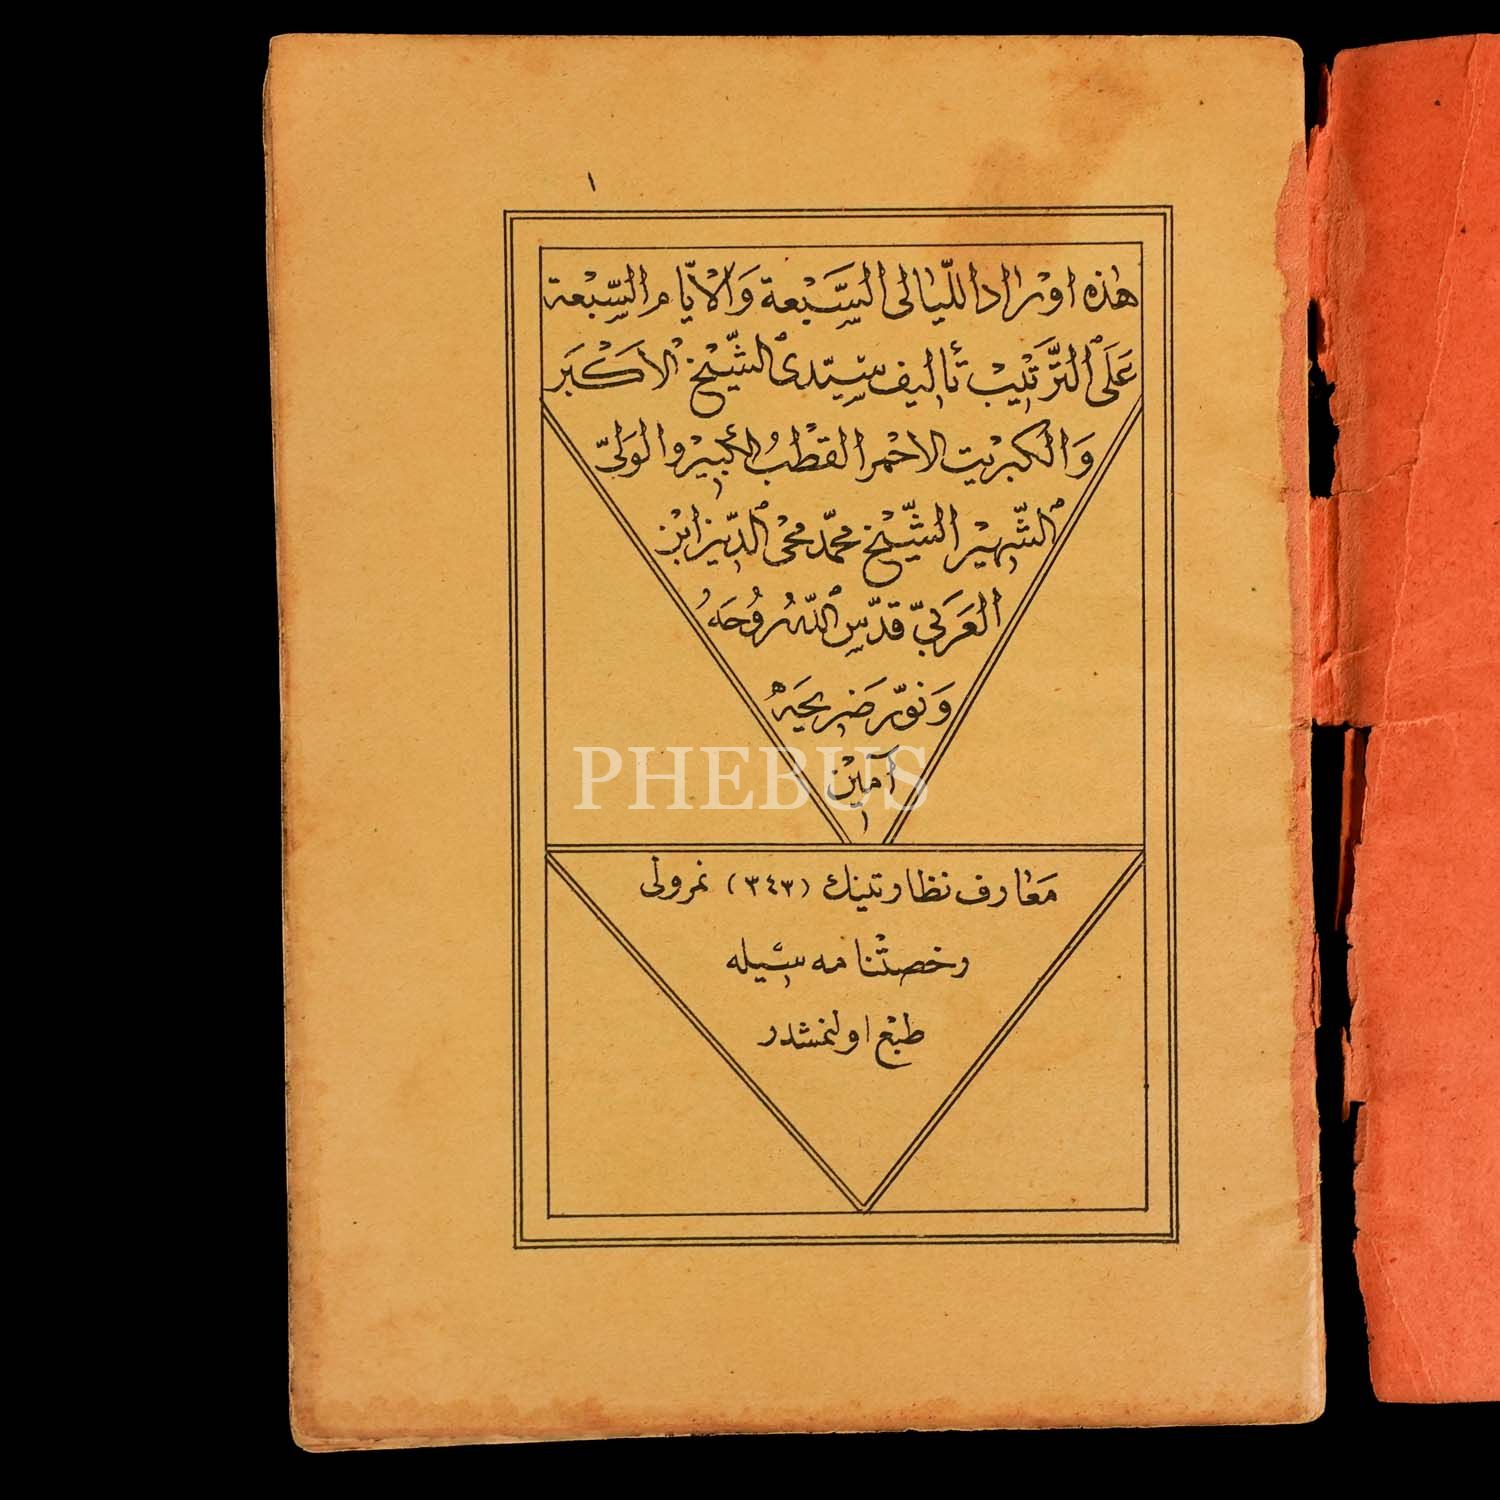 ١
هٰذِهِ اَوْرَادُ اللَّيَالِى السَّبْعَةِ وَالْاَيَّامِ السَّبْعَةِ
عَلَى التَّرْتِيْبِ تَأْلِيفِ سَيِّدِى الشَّيْخِ الْاَكْبَرِ
وَالْكِبْرِيتِ الْاَحْمَرِ الْقُطْبُ الْكَبِيْرِ وَالْوَلِىِّ
الشَّهِيْرِ الشَّيْخِ مُحَمَّد مُحْىِ الدِّينِ ابْنِ
الْعَرَبِىِّ قَدَّسَ اللّٰهُ رُوُحَهُ
وَنَوَّرَ ضَرِيحَهُ
آمِيْنَ
PHEBUS
مَعَارف نظارتينك (٣٤٣) نمرولى
رخصتنامه سيله
طبع اولنمشدر